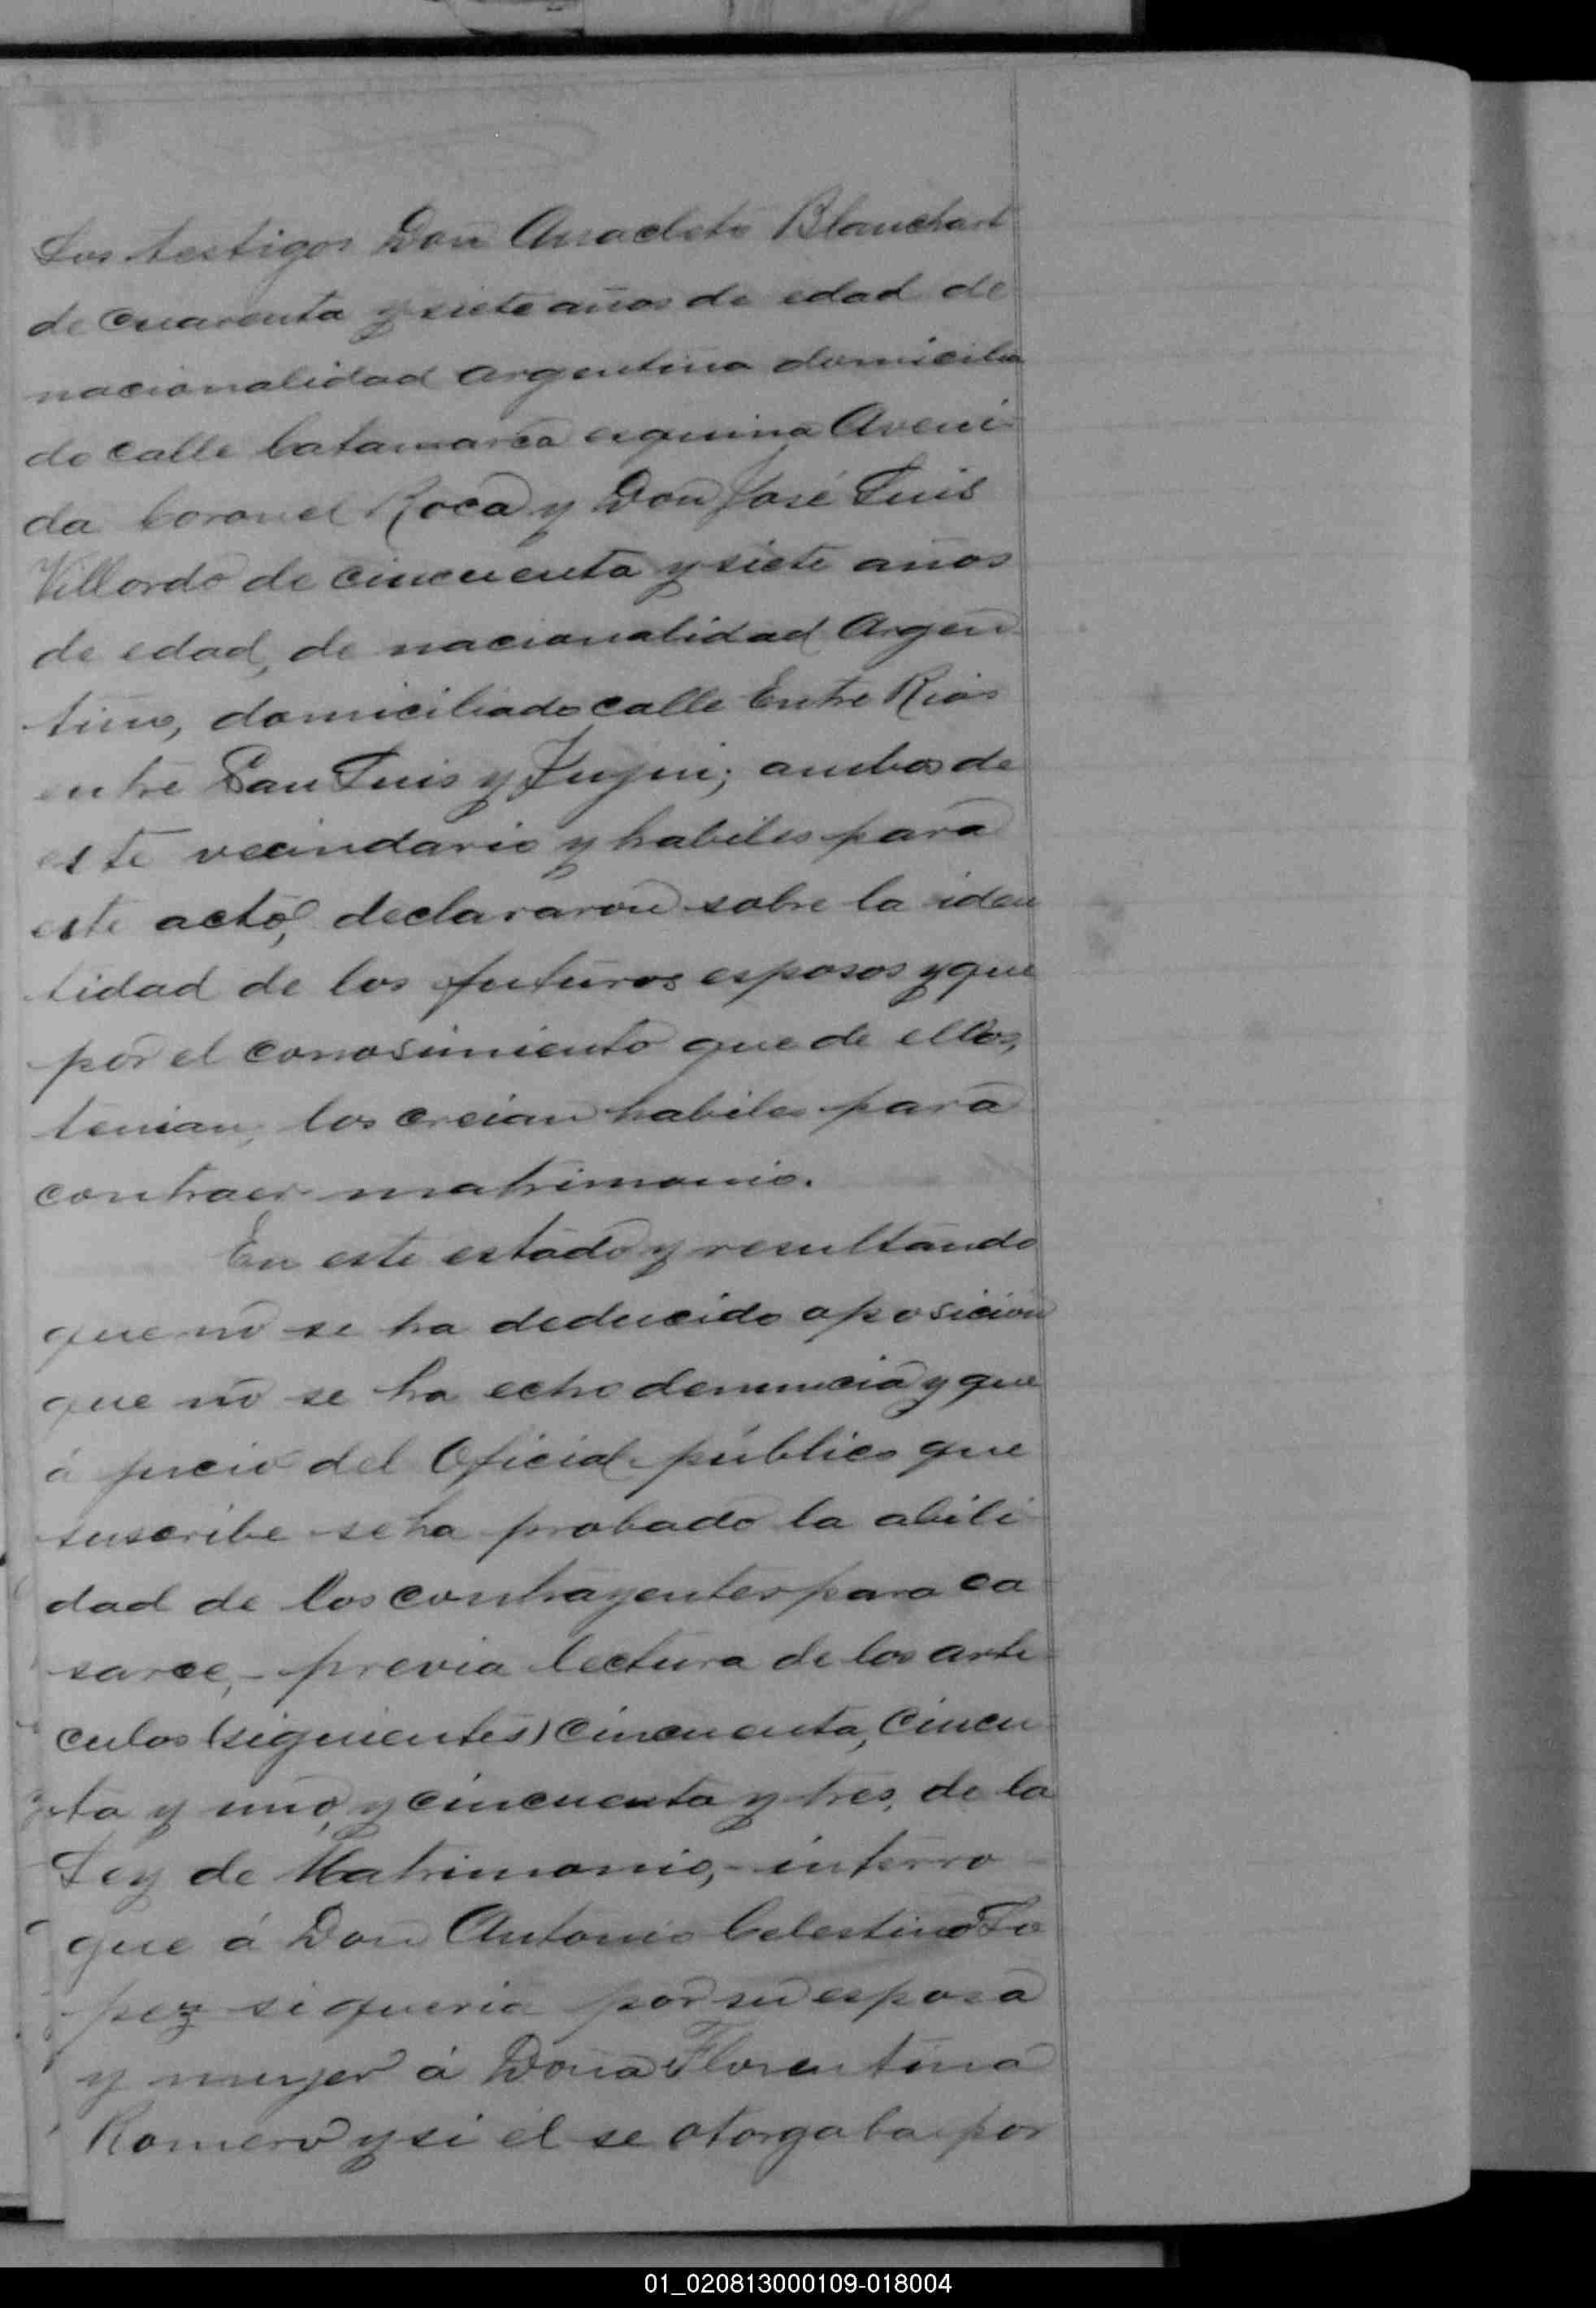 Los testigos Don Anacleto Blanchart
de Cuarenta y siete años de edad de
nacionalidad argentina domicilia
do calle Catamarca esquina Aveni-
da Coronel Roca y Don José Luis
Villordo de cincuenta y siete años
de edad, de nacionalidad Argen-
tino, domiciliado calle Entre Rios
entre San Luis y Junin; ambos de
este vecindario y habiles para
este acto, declararon sobre la iden
tidad de los futuros esposos y que
por el conosimiento que de ellos,
tenian, los creian habiles para
contraer matrimonio.
En este estado y resultando
que no se ha deducido oposicion
que no se ha echo denuncia y que
á jucio del Oficial público que
suscribe se ha probado la abili-
dad de los contrayentes para ca-
sarce, - previa lectura de los arti-
culos (siguientes) cincuenta, Cincu-
ta y uno, y cincuenta y tres, de la
Ley de Matrimonio, - interro-
que á Don Antonio Celestino Lo
pez si queria por su esposa
y mujer á Doña Florentina
Romero y si él se otorgaba por
01_020813000109-018004